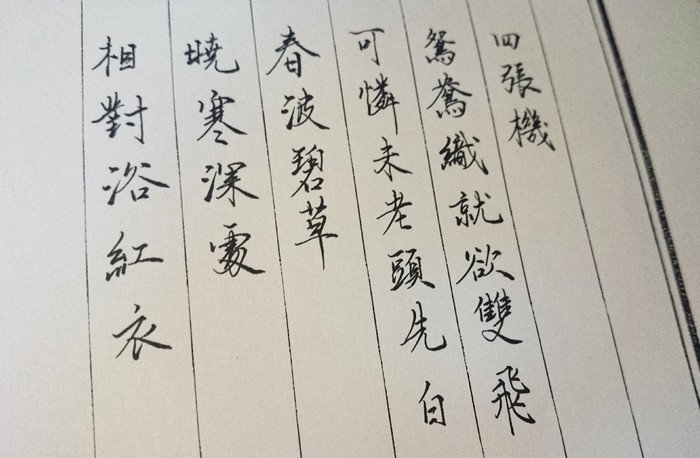 四張機
鴛鴦織就欲雙飛
可憐未老頭先白
春波碧草
曉寒深處
相對浴紅衣